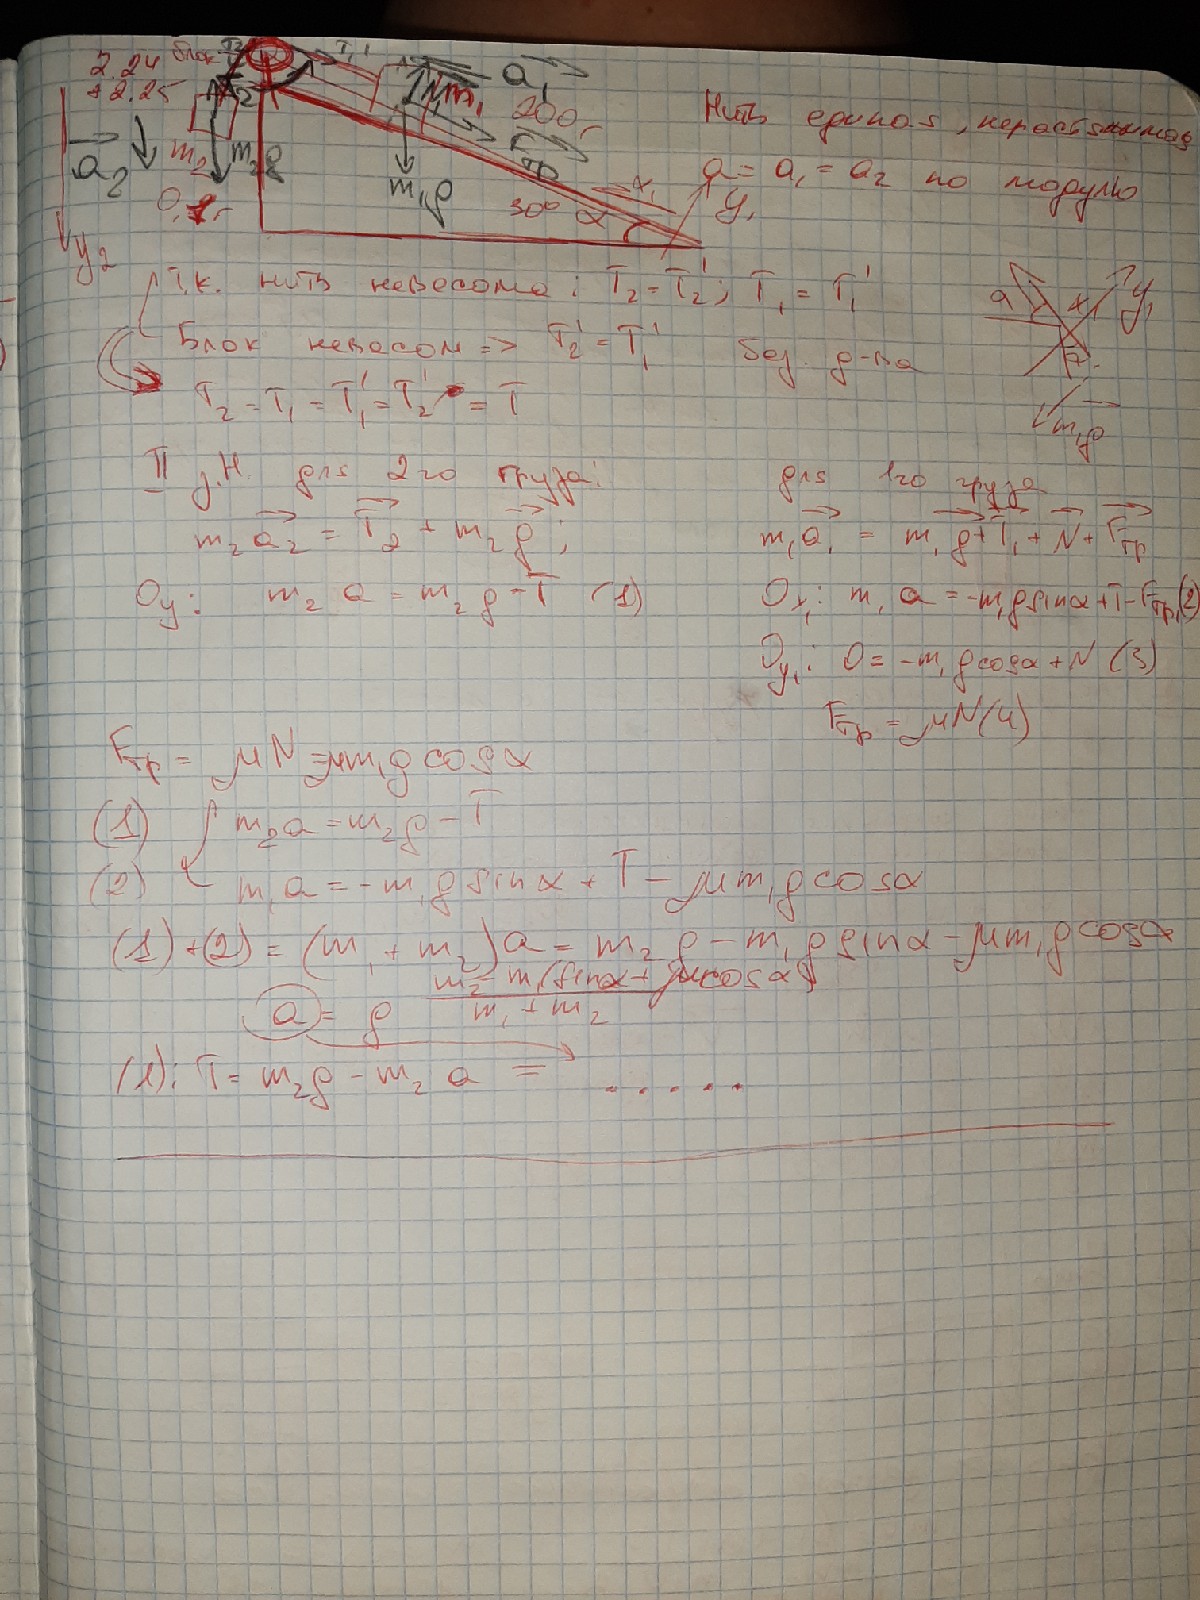 2.24
+2.25
блок
T₁'
a₁
m₁
200г
N
Fтр
m₂
m₂g
m₁g
a₂
y₂
30° α
x₁
y₁
Нить единая, нерастяжимая
a = a₁ = a₂ по модулю
т.к. нить невесома: T₂ = T₂'; T₁ = T₁'
Блок невесом => T₂' = T₁'
T₂ = T₁ = T₁' = T₂' = T
a x₁ y₁
m₁g
II з.Н. для 2го груза:
m₂a₂ = T₂ + m₂g;
Oy: m₂a = m₂g - T (1)
для 1го груза
m₁a₁ = m₁g + T₁ + N + Fтр
Ox₁: m₁a = -m₁g sinα + T - Fтр (2)
Oy₁: 0 = -m₁g cosα + N (3)
Fтр = μN (4)
Fтр = μN = μm₁g cosα
(1) m₂a = m₂g - T
(2) m₁a = -m₁g sinα + T - μm₁g cosα
(1)+(2) = (m₁ + m₂)a = m₂g - m₁g sinα - μm₁g cosα
a = g (m₂ - m₁(sinα + μcosα))/(m₁ + m₂)
(1): T = m₂g - m₂a = .....